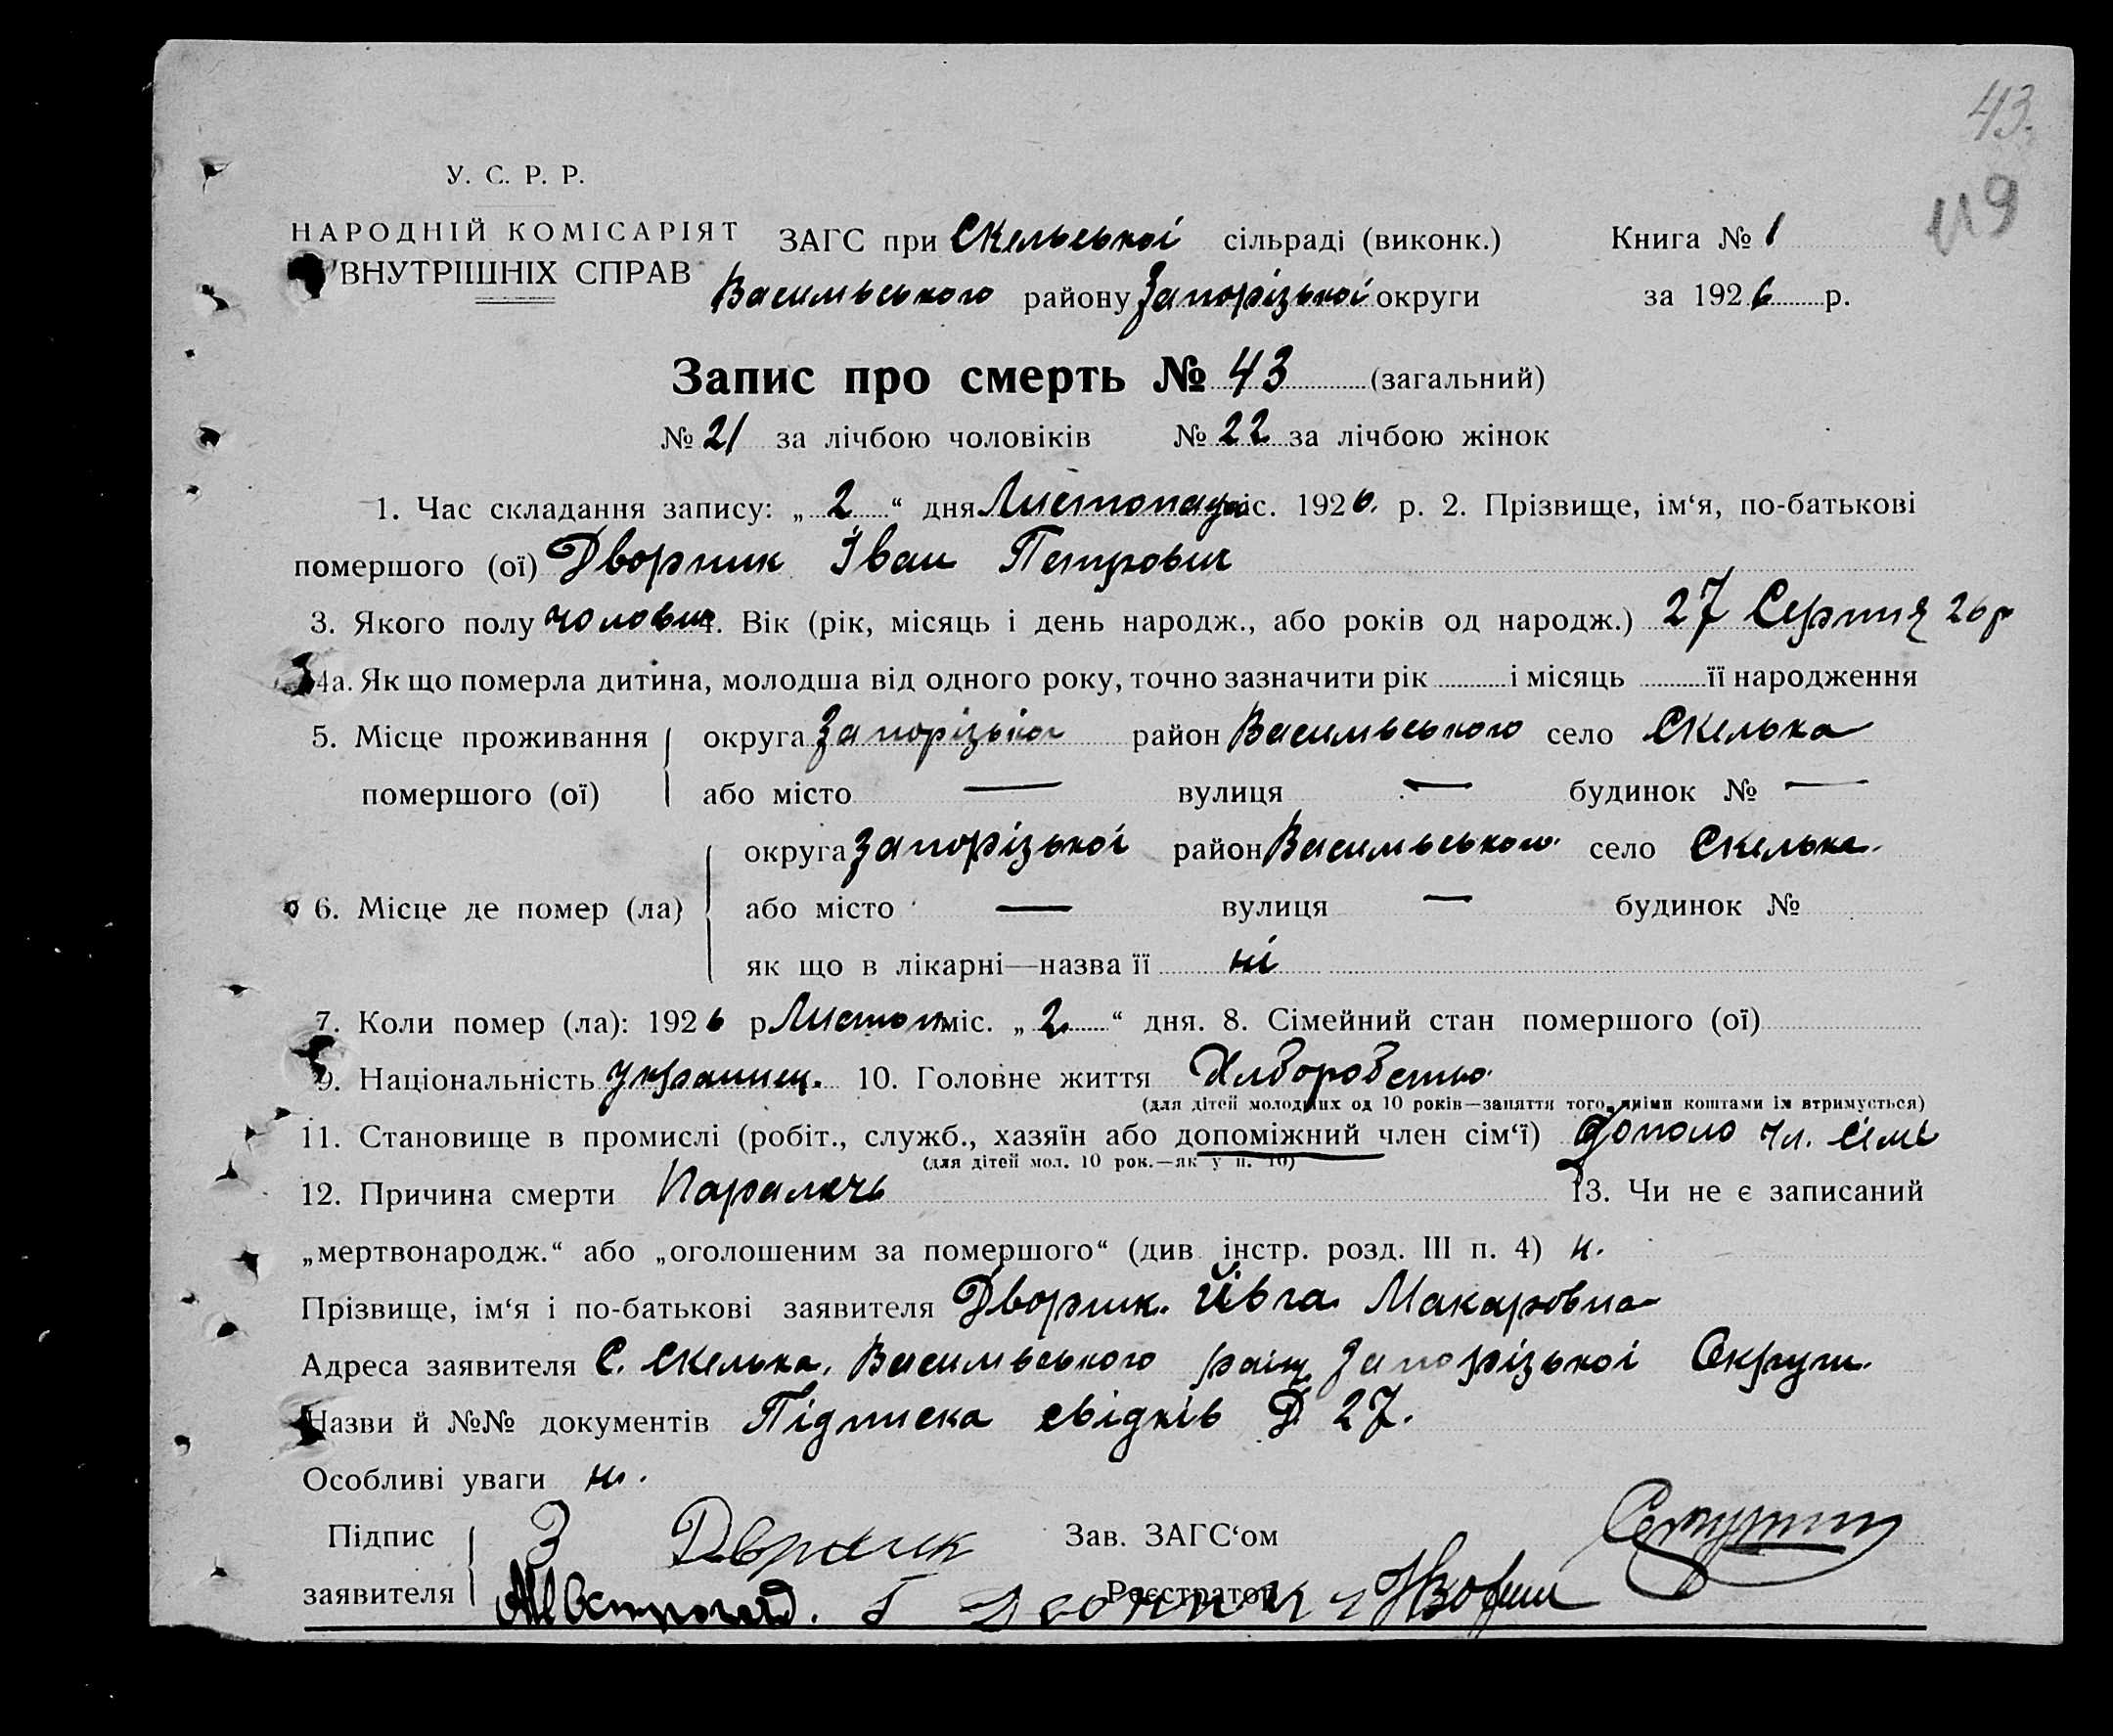 43.
119
У. С. Р. Р.
НАРОДНІЙ КОМІСАРІЯТ
ВНУТРІШНІХ СПРАВ
ЗАГС при Скельської сільраді (виконк.) Книга № 1
Васильського району Запорізької округи за 1926 р.
Запис про смерть № 43 (загальний)
№ 21 за лічбою чоловіків № 22 за лічбою жінок
1. Час складання запису: „ 2 “ дня Листопада міс. 1926. р. 2. Прізвище, ім‘я, по-батькові
помершого (ої) Дворник Іван Петрович
3. Якого полу чоловіч 4. Вік (рік, місяць і день народж., або років од народж.) 27 Серпня 26 р
4а. Як що померла дитина, молодша від одного року, точно зазначити рік і місяць її народження
5. Місце проживання округа Запорізької район Васильського село Скелька
помершого (ої) або місто — вулиця — будинок № —
округа Запорізької район Васильського село Скелька.
6. Місце де помер (ла) або місто — вулиця — будинок №
як що в лікарні—назва її ні
7. Коли помер (ла): 1926 р Листоп міс. „ 2 “ дня. 8. Сімейний стан помершого (ої)
9. Національність Украинец. 10. Головне життя Хлборобство
(для дітей молодших од 10 років—заняття того, якими коштами їх втримується)
11. Становище в промислі (робіт., служб., хазяїн або допоміжний член сім‘ї) Допомо чл. сімї
(для дітей мол. 10 рок.—як у п. 10)
12. Причина смерти Паралечь 13. Чи не є записаний
„мертвонародж.“ або „оголошеним за помершого“ (див. інстр. розд. III п. 4) н.
Прізвище, ім‘я і по-батькові заявителя Дворник. Ївга Макаровна
Адреса заявителя С. Скелька, Васильського райн Запорізької Округи.
Назви й №№ документів Підписка свідків Д 27.
Особливі уваги ні.
Підпис З Двраик Зав. ЗАГС‘ом
заявителя Реєстратор